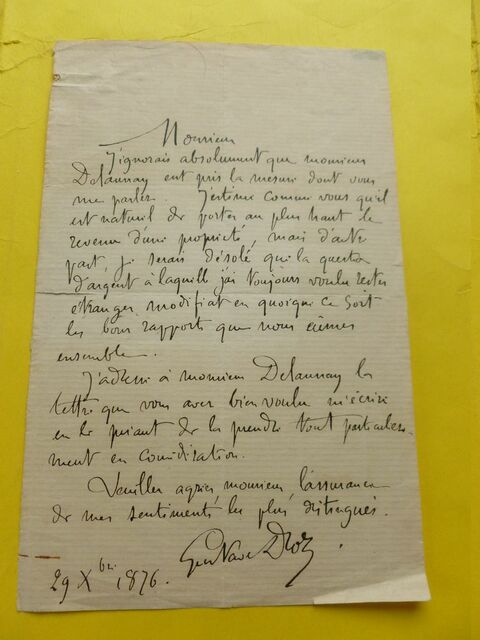 Monsieur
J'ignorais absolument que monsieur
Delaunay eut pris la mesure dont vous
me parlez. J'estime comme vous qu'il
est naturel de porter au plus haut le
revenu d'une propriété, mais d'autre
part je serais désolé que la question
d'argent à laquelle j'ai toujours voulu rester
étranger modifiat en quoique ce soit
les bons rapports que nous eûmes
ensemble.
J'adresse à monsieur Delaunay la
lettre que vous avez bien voulu m'écrire
en le priant de la prendre tout particulière-
ment en considération.
Veuillez agréer, monsieur l'assurance
de mes sentiments les plus distingués.
Gustave Droz.
29 Xbre 1876.